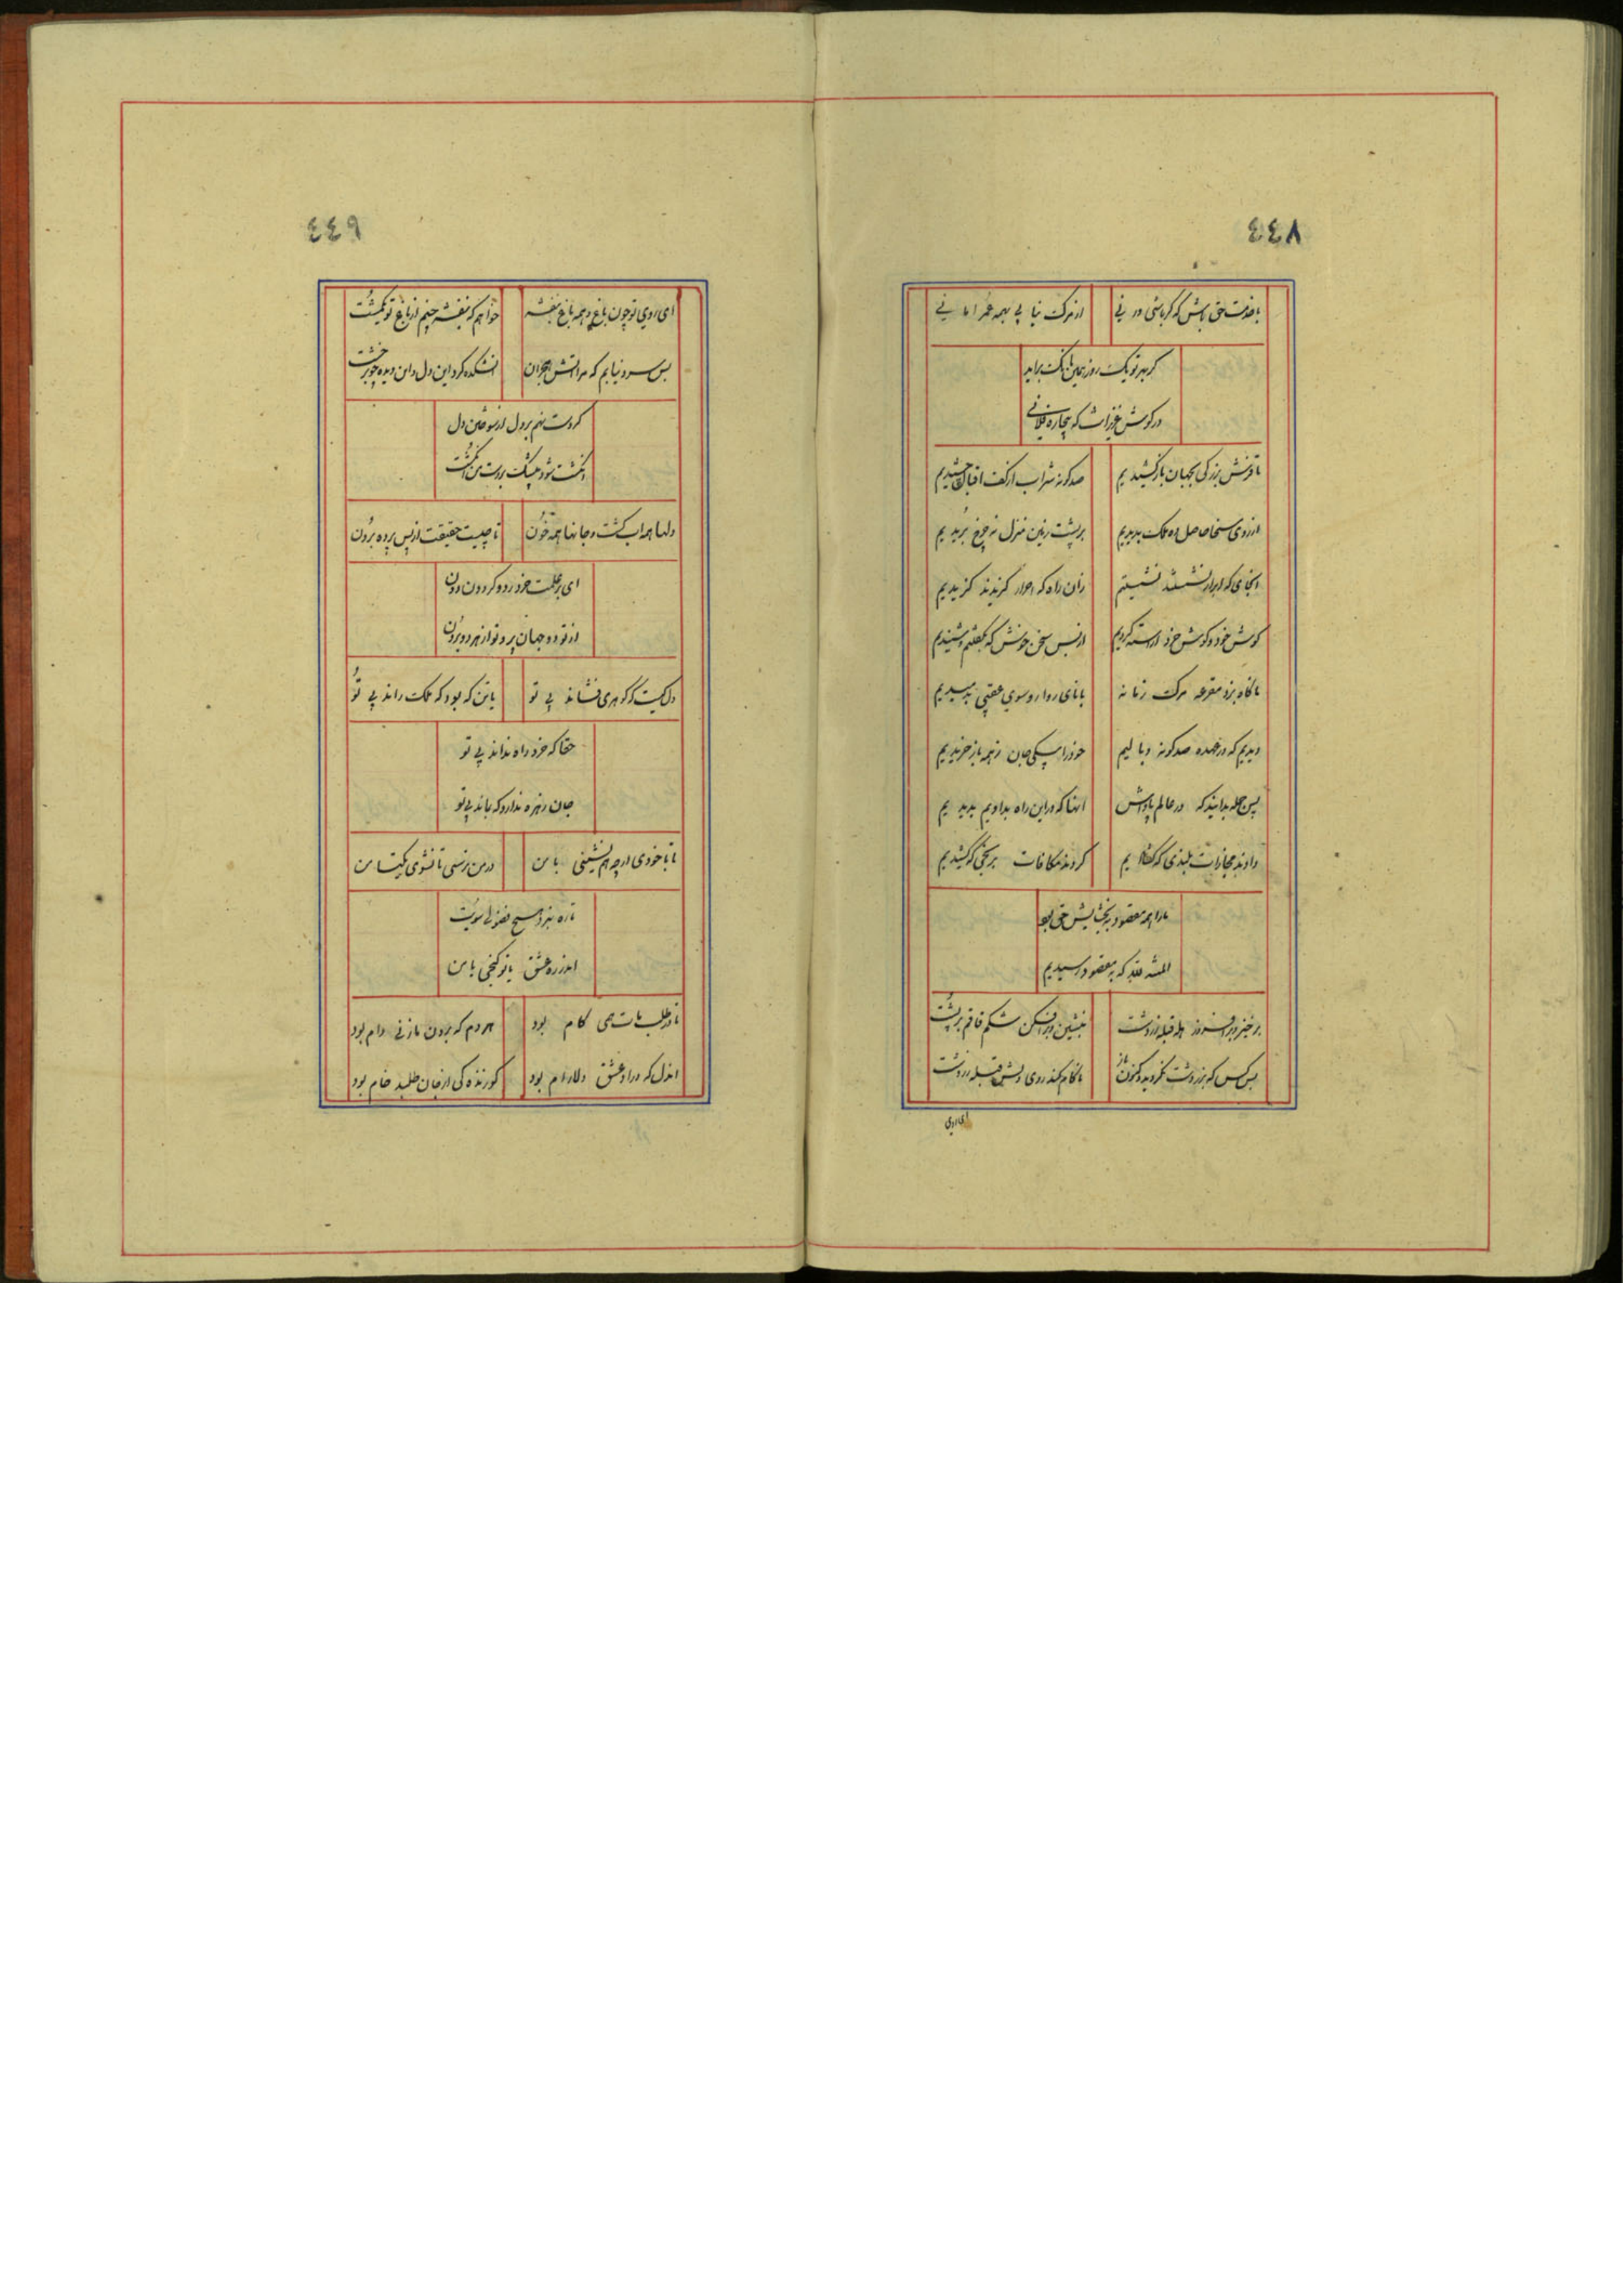 ٤٤٨
با خدمت حق باش که گر باشی ور نی از مرگ نیابی بهمه عمر امانی
گر بهر تو یک روز همین بانگ براید
در گوش عزیزانت که بیچاره فلانی
تا نقش بزرگی بجهان باز کشیدیم صد گونه شراب از کف اقبال چشیدیم
از روی سخا حاصل ده ملک بدیدیم بر پشت زمین منزل نه چرخ بریدیم
انجای که ابرار نشستند نشستیم زان راه که احرار گزیدند گزیدیم
گوش خود و گوش خرد اراسته کردیم از بس سخن خوش که بگفتیم و شنیدیم
ناگاه بزد مقرعه مرگ زمانه با نای روارو سوی عقبی بدمیدیم
دیدیم که در عهده صد گونه وبالیم خود را بیکی جان ز همه باز خریدیم
پس جمله بدانید که در عالم پاداش انها که در این راه بدادیم بدیدیم
دادند مجازات ببندی که گشادیم کردند مکافات برنجی که کشیدیم
ما را همه مقصود ببخشایش حق بود
المنة لله که بمقصود رسیدیم
برخیز و برافروز هله قبله زردشت بنشین و برافکن شکم قاقم بر پشت
بس کس که ز زردشت بگردیده و کنون باز ناکام کند روی دلش قبله زردشت
ای روی
٤٤٩
ای روی تو چون باغ و همه باغ بنفشه خواهم که بنفشه چنم از باغ تو یکمشت
بس سرد نیابم که مرا اتش هجران اتشکده کرد این دل و این دیده چو چرخشت
گر دست نهم بر دل از سوختن دل
انگشت شود بیشک در دست من انگشت
دلها همه اب گشت و جانها همه خون تا چیست حقیقت از پس پرده برون
ای بر علمت خرد رد و گردون دون
از تو دو جهان پر و تو از هر دو برون
دل کیست که گوهری فشاند بی تو یا تن که بود که ملک راند بی تو
حقا که خرد راه نداند بی تو
جان زهره ندارد که بماند بی تو
تا با خودی ارچه همنشینی با من در من نرسی تا نشوی یکتا من
تا ره نبرد هیچ فضولی سویت
اندر ره عشق یا تو گنجی یا من
تا در طلب مات همی کام بود هر دم که برون ما زنی دام بود
اندل که در او عشق دلارام بود گر زندگی از جان طلبد خام بود